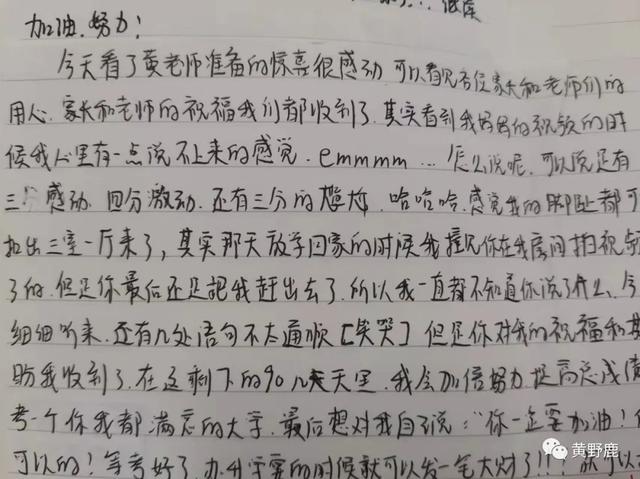 低年
加油.努力!
今天看了黄老师准备的惊喜很感动 可以看见各位家长和老师们的
用心.家长和老师的祝福我们都收到了.其实看到我妈妈的祝福的时
候我心里有一点说不上来的感觉.emmmm...怎么说呢.可以说是有
三分感动.四分激动.还有三分的尴尬.哈哈哈.感觉我的脚趾都可
抠出三室一厅来了,其实那天放学回家的时候我撞见你在我房间拍祝
了的.但是你最后还是把我赶出去了.所以我一直都不知道你说了什么.今
细细听来.还有几处语句不太通顺[笑哭]但是你对我的祝福和期
盼我收到了.在这剩下的90几天里.我会加倍努力提高总成绩
考一个你我都满意的大学.最后想对我自己说:"你一定要加油!
可以的!等考好了.办升学宴的时候就可以发一笔大财了!!!
黄野鹿